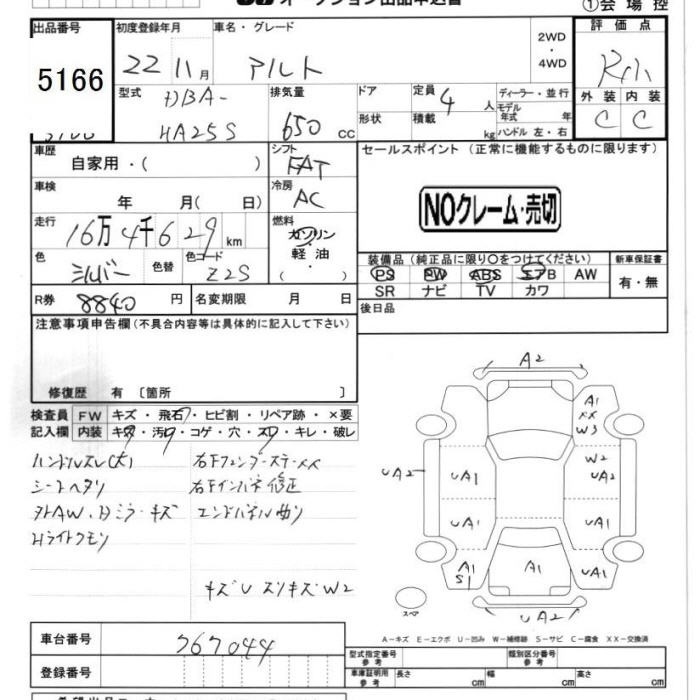 オークション出品申込書
①会場控
出品番号
5166
初度登録年月
22 11月
車名・グレード
アルト
2WD
・
4WD
評価点
R小
外装 内装
C C
型式
DBA-
HA25S
排気量
650 cc
ドア
形状
定員
4 人
積載
kg
ディーラー・並行
モデル年式 年
ハンドル 左・右
車歴
自家用・( )
シフト
FAT
車検
年 月( 日)
冷房
AC
走行
16万4千629 km
燃料
ガソリン
軽油
・( )
色
シルバー
色替
色コード
Z2S
R券
8840 円
名変期限 月 日
セールスポイント(正常に機能するものに限ります)
NOクレーム・売切
装備品(純正品に限り○をつけてください)
PS PW ABS エアB AW
SR ナビ TV カワ
新車保証書
有・無
後日品
注意事項申告欄(不具合内容等は具体的に記入して下さい)
修復歴 有 〔箇所 〕
検査員記入欄
FW キズ・飛石・ヒビ割・リペア跡・×要
内装 キズ・汚レ・コゲ・穴・スレ・キレ・破レ
ハンドルスレ(大)
シートヘタリ
外AW、Dミラーキズ
Hライトクモリ
右Fフェンダーステー××
右Fインパネ修正
エンドパネル曲り
キズU スリキズW2
A2
A1
××
W3
W2
UA2
UA2
UA1
UA1
UA1
UA1
A1
S1
A1
UA2
スペア
A-キズ E-エクボ U-凹み W-補修跡 S-サビ C-腐食 XX-交換済
車台番号
767044
登録番号
型式指定番号 参考
類別区分番号 参考
車庫証明用 参考
長さ cm
幅 cm
高さ cm